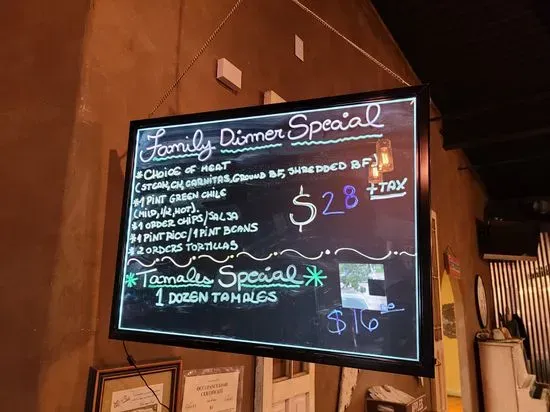 Family Dinner Special
* CHOICE OF MEAT
(STEAK, CK, CARNITAS, GROUND BF, SHREDDED BF)
* 1 PINT GREEN CHILE
(MILD, 1/2, HOT).
* 1 ORDER CHIPS/SALSA
* 1 PINT RICE/1 PINT BEANS
* 2 ORDERS TORTILLAS
$28
+TAX
* Tamales Special *
1 DOZEN TAMALES
$16.00
CERTIFICATE